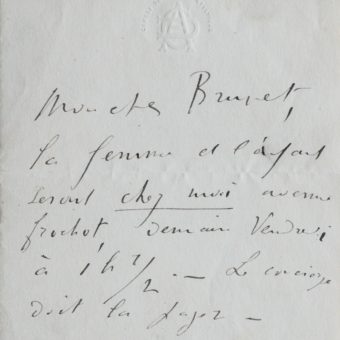 Mon cher Brunet,
la femme et l'enfant
seront chez moi avenue
frochot, demain Vendredi
à 1 h 1/2. — Le concierge
doit la